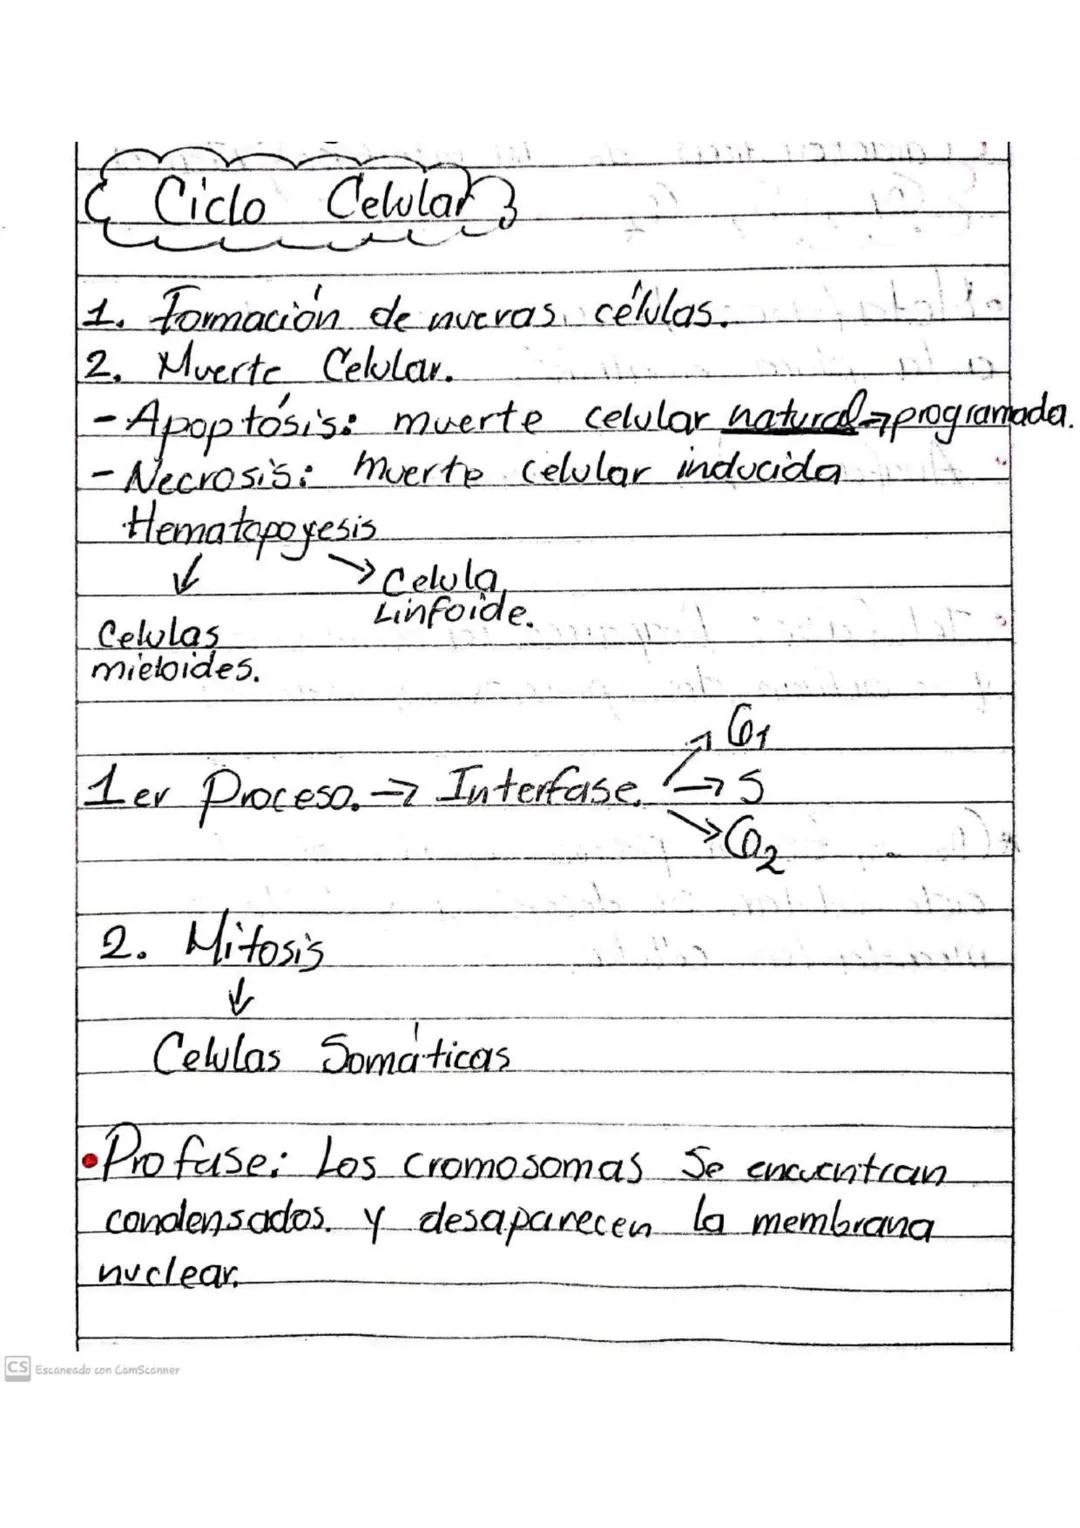 Ciclo Celular
1. Formación de nuevas células.
2. Muerte Celular.
- Apoptósis: muerte celular natural → programada.
- Necrosis: muerte celular inducida
Hematopoyesis
↓ → Celula
Linfoide.
Celulas
mieloides.
→ G1
1er Proceso. → Interfase. → S
→ G2
2. Mitosis
↓
Celulas Somáticas
• Profase: Los cromosomas se encuentran
condensados. y desaparecen la membrana
nuclear.
CS Escaneado con CamScanner